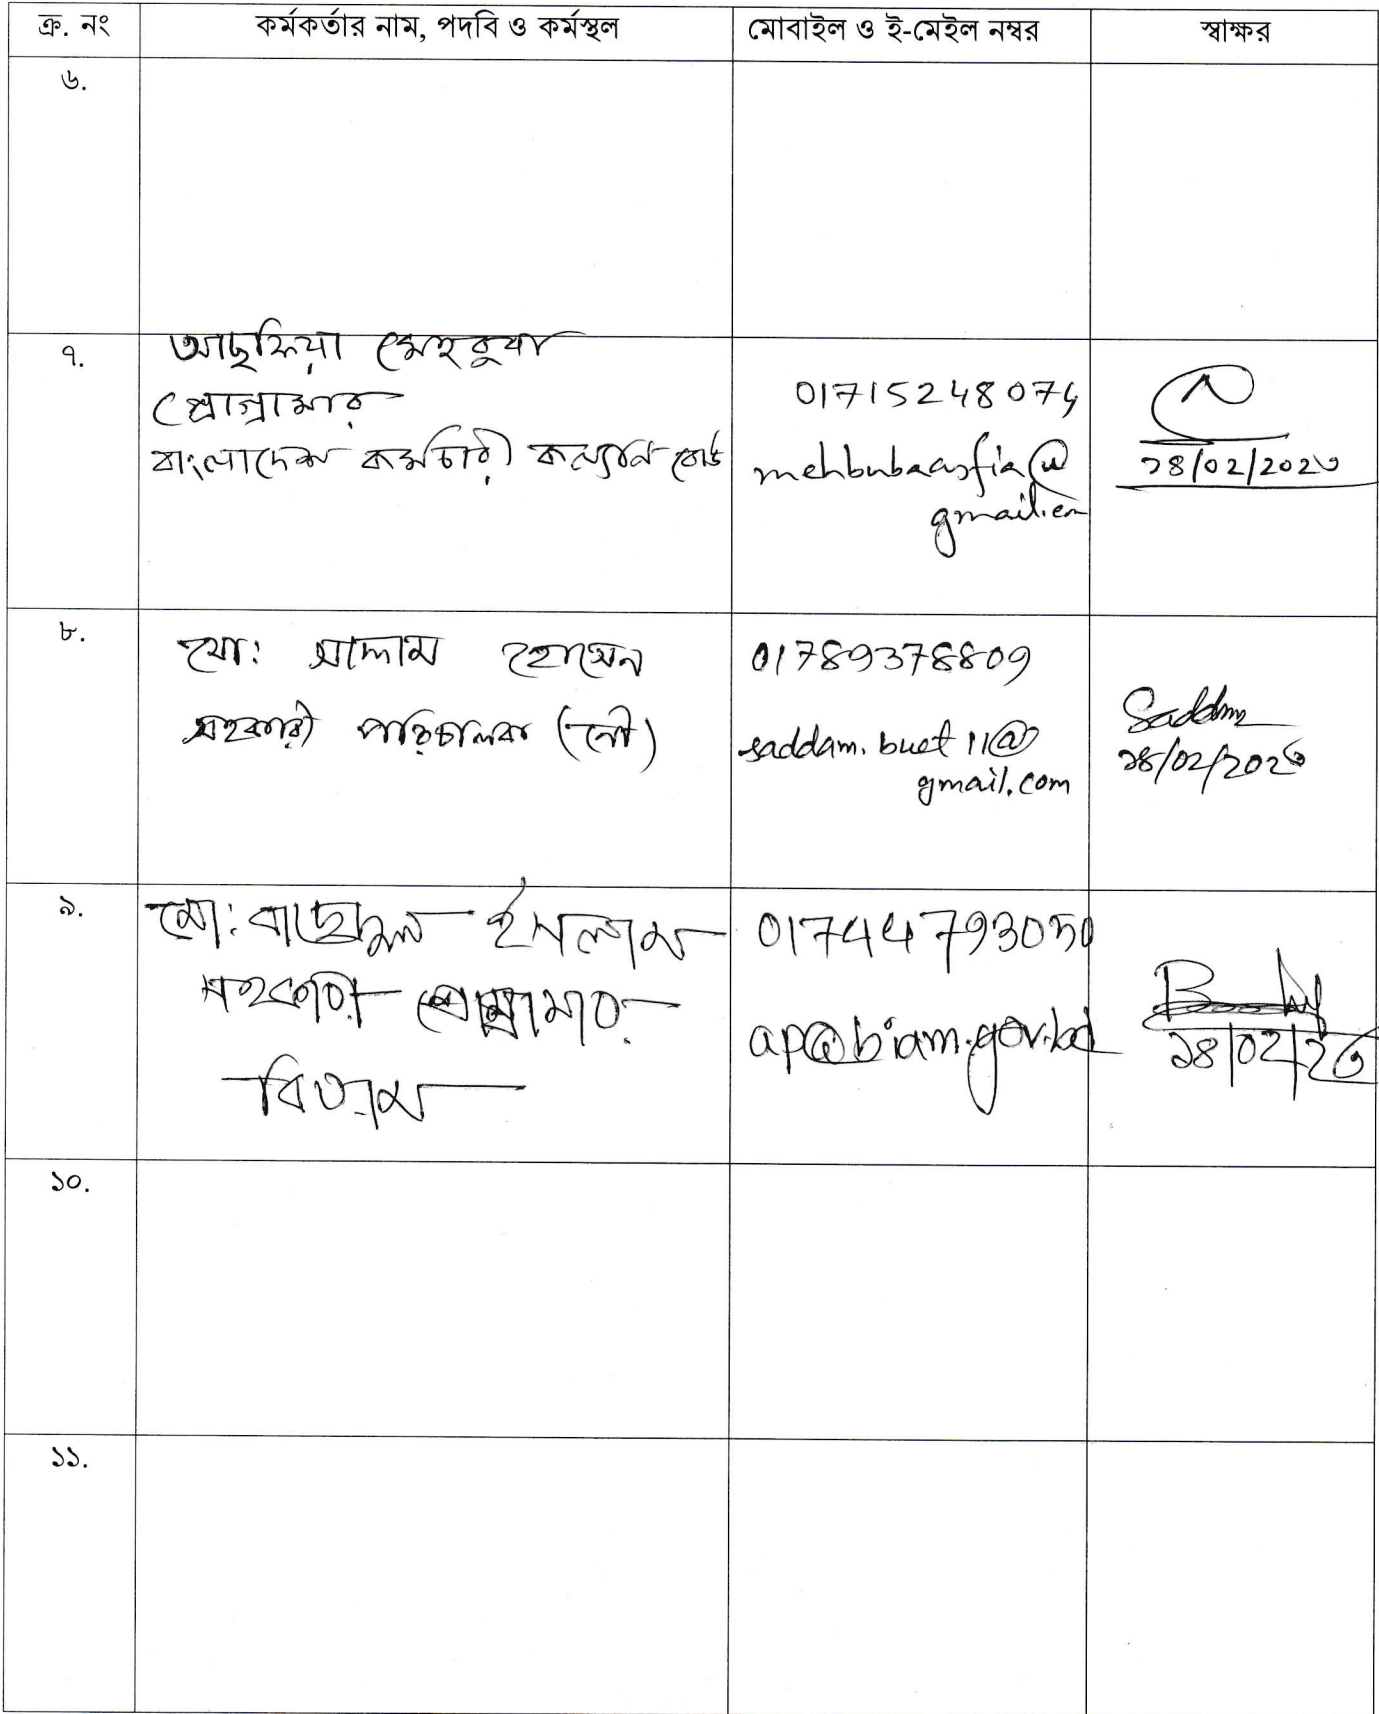 ক্র. নং কর্মকর্তার নাম, পদবি ও কর্মস্থল মোবাইল ও ই-মেইল নম্বর স্বাক্ষর
৬.
৭. আছফিয়া মেহবুবা
প্রোগ্রামার
বাংলাদেশ কর্মচারী কল্যাণ বোর্ড
01715248074
mehbubaasfia@
gmail.com
২৪/02/202৩
৮. মো: সাদ্দাম হোসেন
সহকারী পরিচালক (নৌ)
01789378809
saddam.buet11@
gmail.com
Saddam
২৪/02/202৩
৯. মো: ইসলাম
সহকারী প্রোগ্রামার
বিয়াম
01744793050
ap@biam.gov.bd
২৪/02/2৩
১০.
১১.